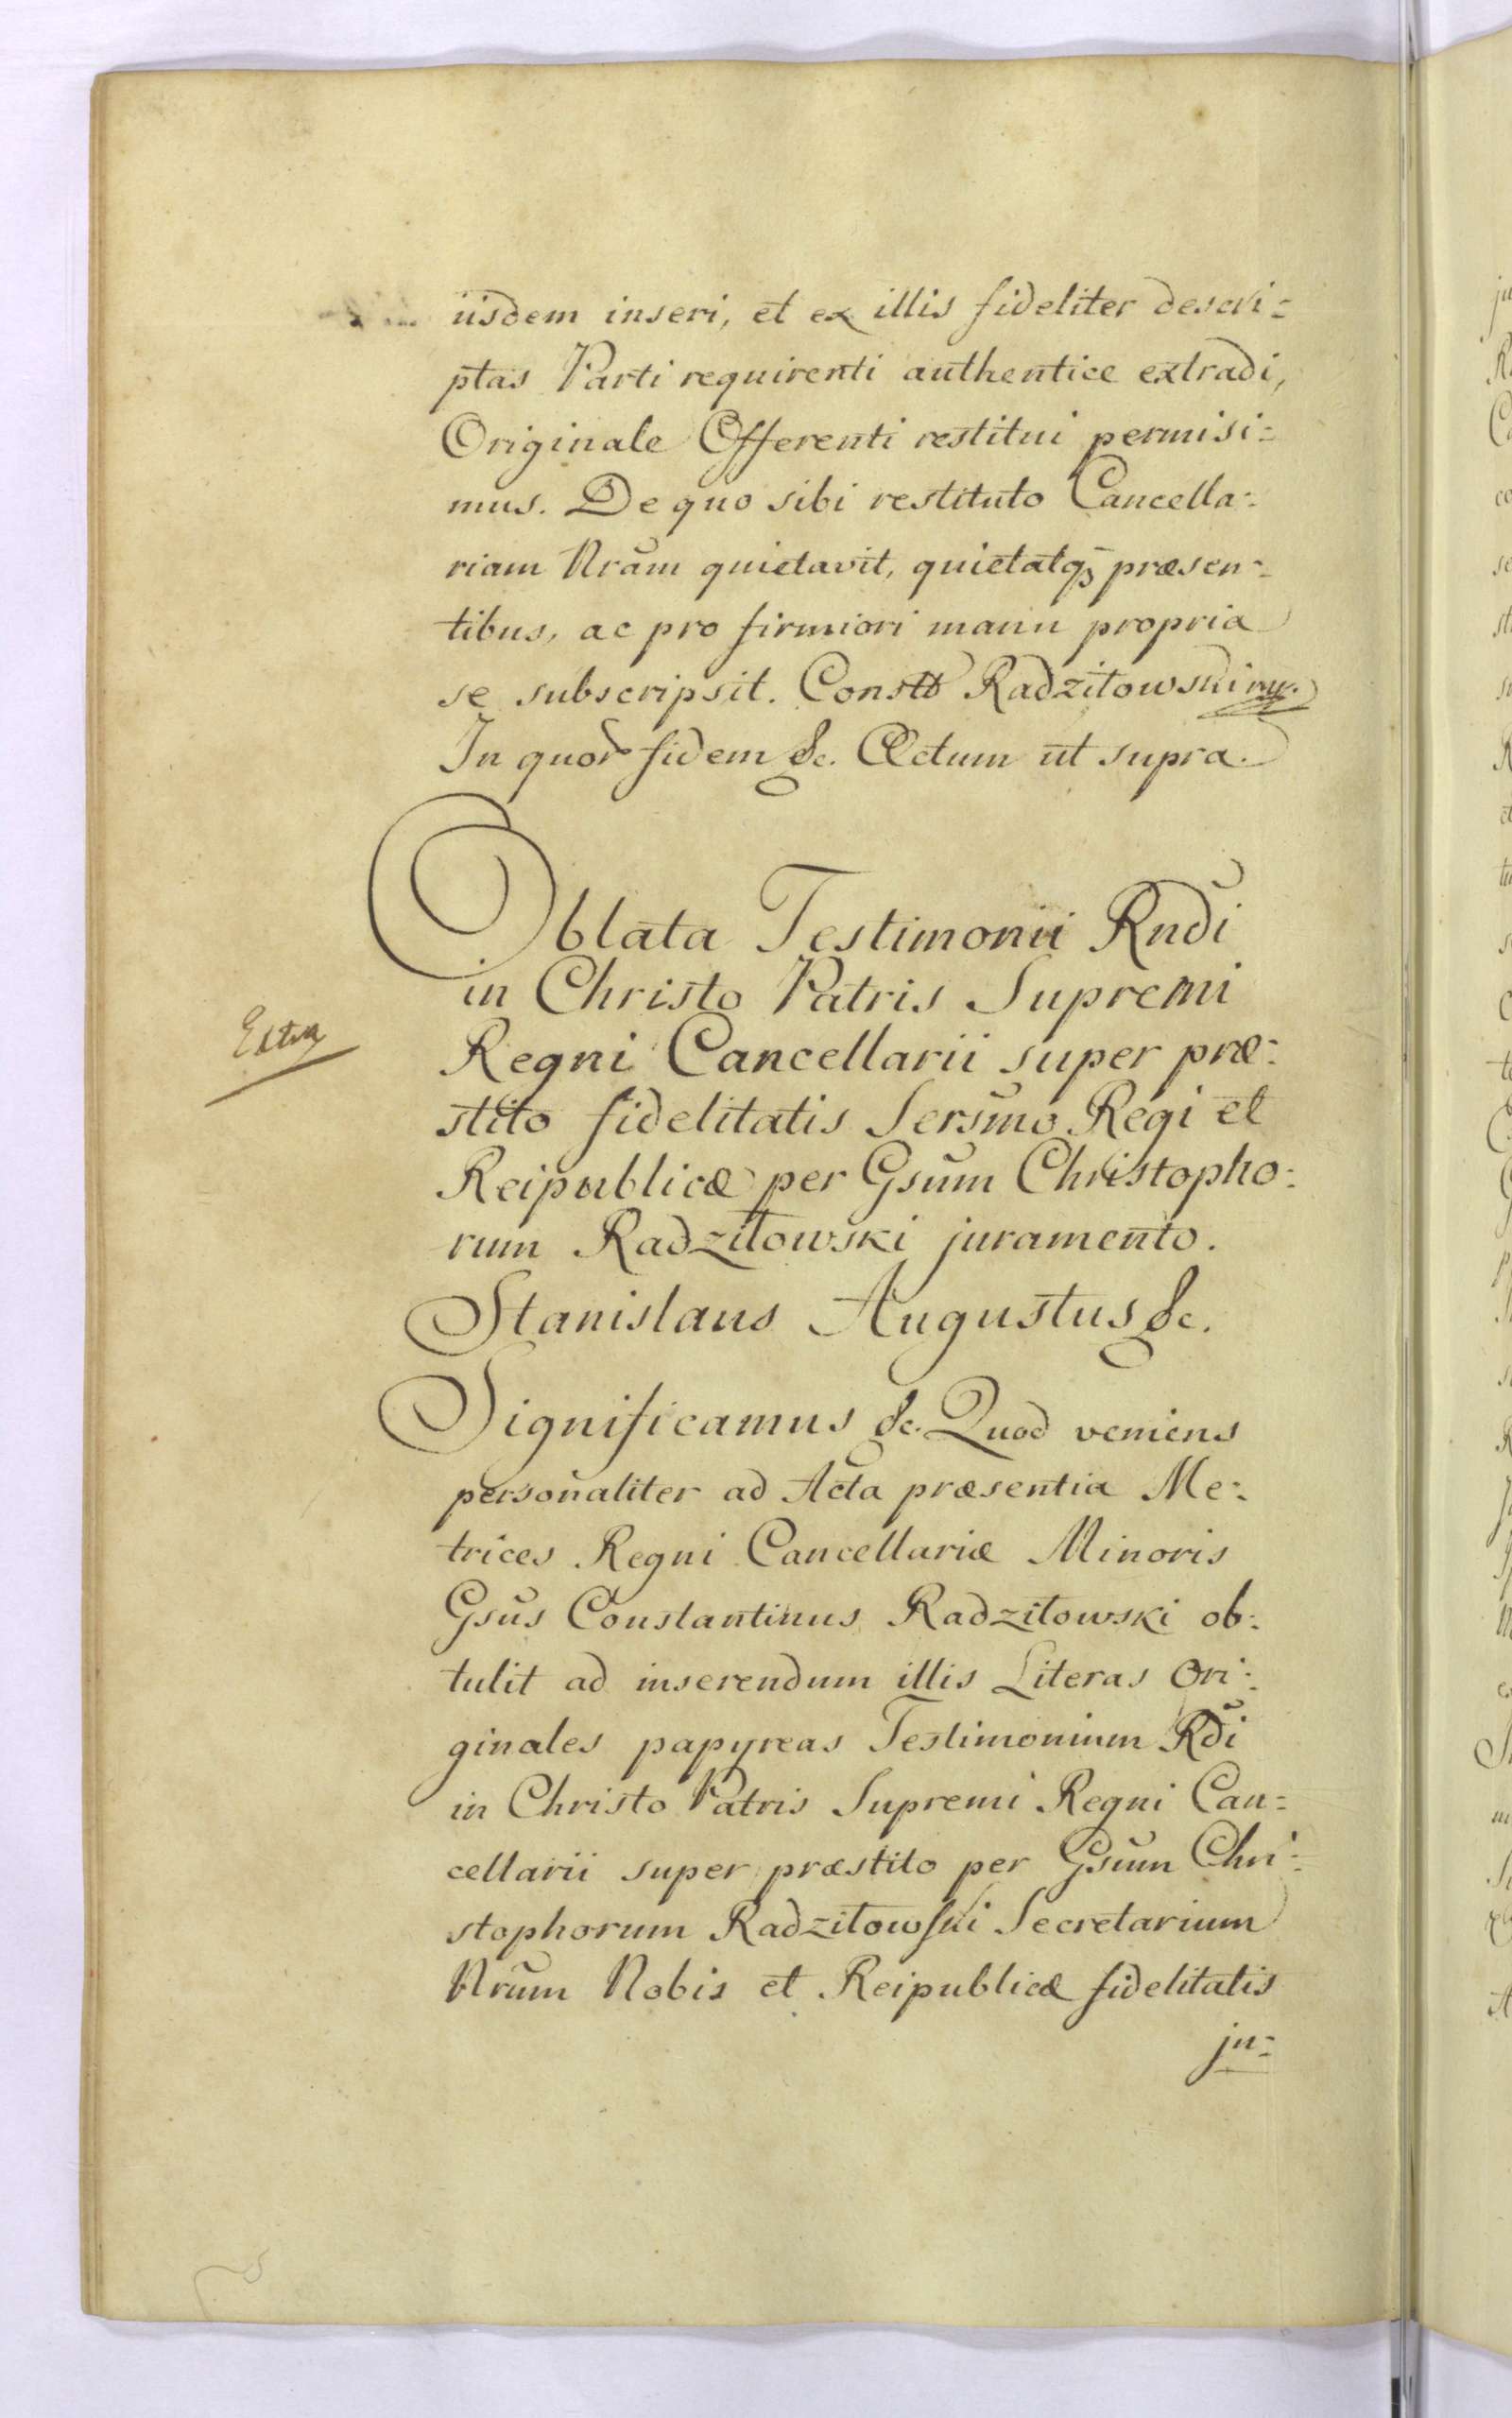 iisdem inseri, et ex illis fideliter descri=
ptas Parti requirenti authentice extradi,
Originale Offerenti restitui permisi=
mus. De quo sibi restituto Cancella=
riam Nram quietavit, quietatq; præsen=
tibus, ac pro firmiori manu propria
se subscripsit. Constt Radzitowski mp.
In quor fidem &c. Actum ut supra.
Oblata Testimonii Rndi
in Christo Patris Supremi
Regni Cancellarii super præ=
stito fidelitatis Sersmo Regi et
Reipublicæ per Gsum Christopho=
rum Radzitowski juramento.
Stanislaus Augustus &c.
Significamus &c. Quod veniens
personaliter ad Acta præsentia Me=
trices Regni Cancellariæ Minoris
Gsus Constantinus Radzitowski ob=
tulit ad inserendum illis Literas Ori=
ginales papyreas Testimonium Rdi
in Christo Patris Supremi Regni Can=
cellarii super præstito per Gsum Chri=
stophorum Radzitowski Secretarium
Nrum Nobis et Reipublicæ fidelitatis
ju=